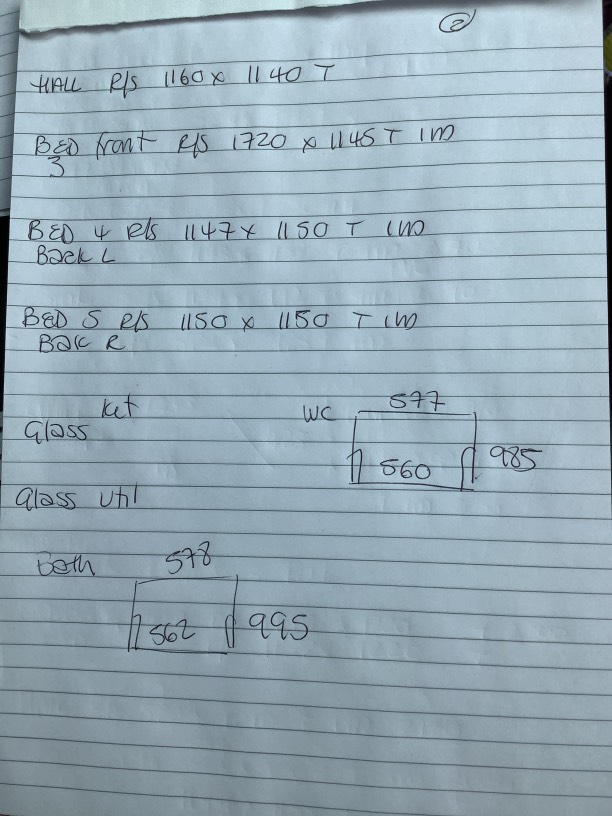 2
HALL R/S 1160 x 1140 T
BED front R/S 1720 x 1145 T IM
3
BED 4 R/S 1147 x 1150 T IM
Back L
BED 5 R/S 1150 x 1150 T IM
Back R
Kit
Glass
WC 577
560 985
Glass Util
Bath 578
562 995